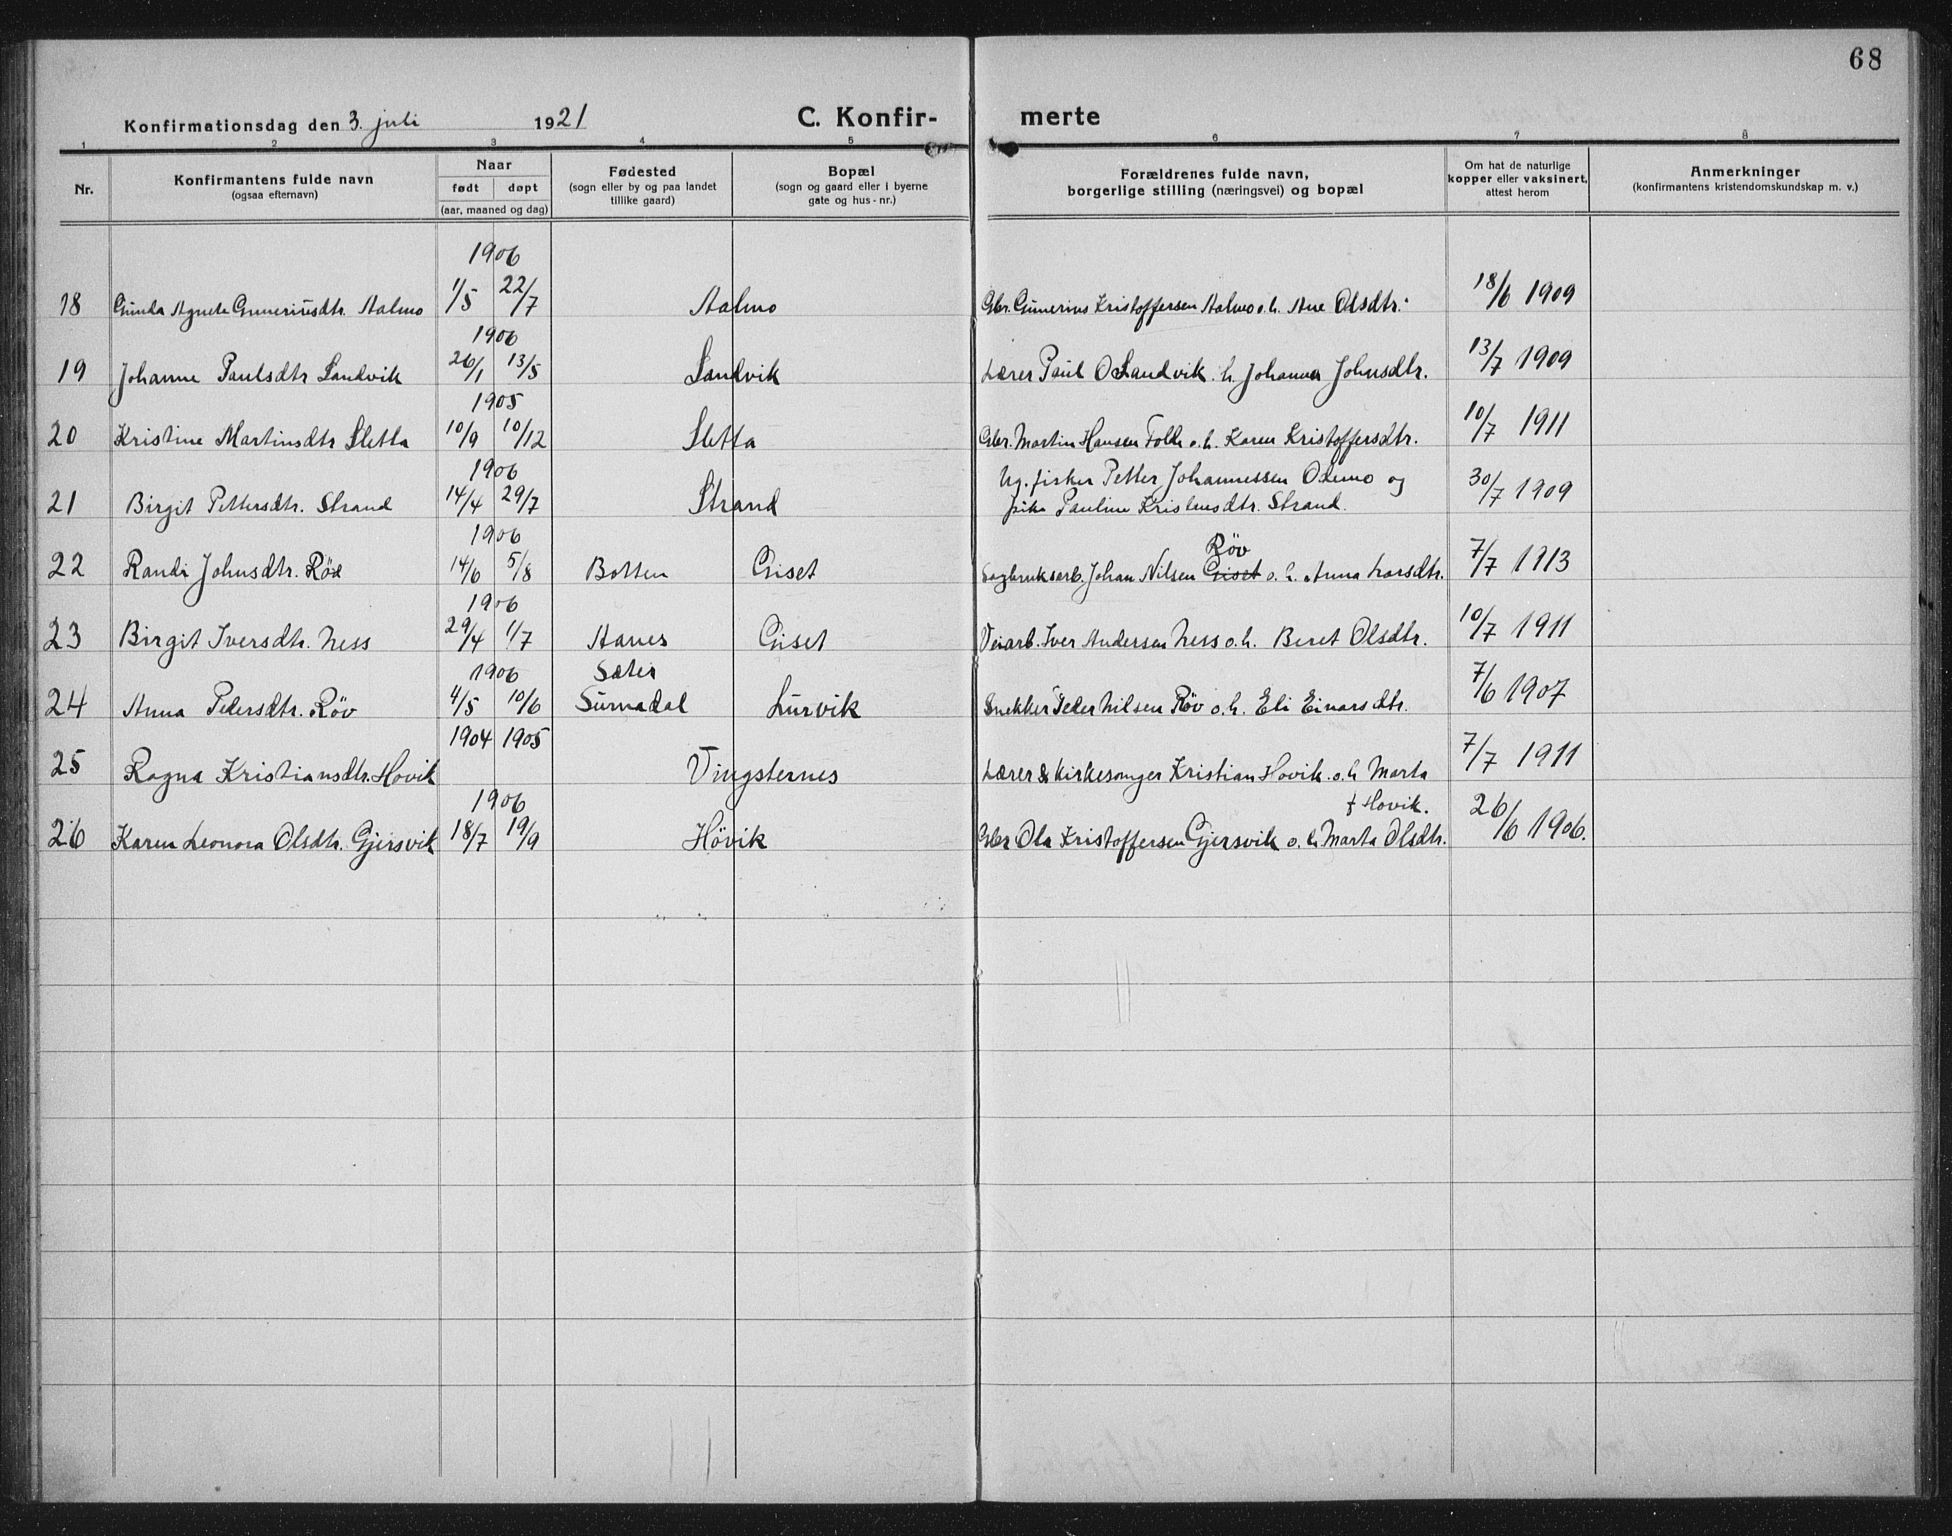 68
Konfirmationsdag den 3. juli 1921 C. Konfir- merte
1 2 3 4 5 6 7 8
Nr. Konfirmantens fulde navn (ogsaa efternavn) Naar født døpt (aar, maaned og dag) Fødested (sogn eller by og paa landet tillike gaard) Bopæl (sogn og gaard eller i byerne gate og hus-nr.) Forældrenes fulde navn, borgerlige stilling (næringsvei) og bopæl Om hat de naturlige kopper eller vaksinert, attest herom Anmerkninger (konfirmantens kristendomskundskap m. v.)
1906
18 Gunda Agnete Gunneriusdtr. Aalmo 1/5 22/7 Aalmo Gbr. Gunerius Kristoffersen Aalmo o. h. Ane Olsdtr. 18/6 1909
1906
19 Johanne Paulsdtr Sandvik 26/1 13/5 Sandvik Lærer Paul O Sandvik. h. Johanna Johnsdtr. 13/7 1909
1905
20 Kristine Martinsdtr Sletta 10/9 10/12 Sletta Gbr. Martin Hansen o. h. Karen Kristoffersdtr. 10/7 1911
1906
Ug. fisker Petter Johannessen og
21 Birgit Pettersdtr. Strand 14/4 29/7 Strand pike Pauline Kristensdtr. Strand. 30/7 1909
1906
Røv
22 Randi Johnsdtr. Røv 14/6 5/8 Botten Giset Sagbruksarb. Johan Nilsen Giset o. h. Anna Larsdtr. 7/7 1913
1906
23 Birgit Iversdtr. Ness 29/4 1/7 Aanes Giset Veiarb. Iver Andersen Ness o. h. Beret Olsdtr. 10/7 1911
1906 Sæter
24 Anna Pedersdtr. Røv 4/5 10/6 Surnadal Lurvik Snekker Peder Nilsen Røv o. h. Eli Einarsdtr. 7/6 1907
1904 1905
25 Ragna Kristiansdtr. Hovik Vingsternes Lærer & Kirkesanger Kristian Hovik. o. h. Marta 7/7 1911
1906
f Hovik.
26 Karen Leonora Olsdtr. Gjersvik 18/7 19/9 Høvik Gbr Ola Kristoffersen Gjersvik o. h. Marta Olsdtr. 26/6 1906.